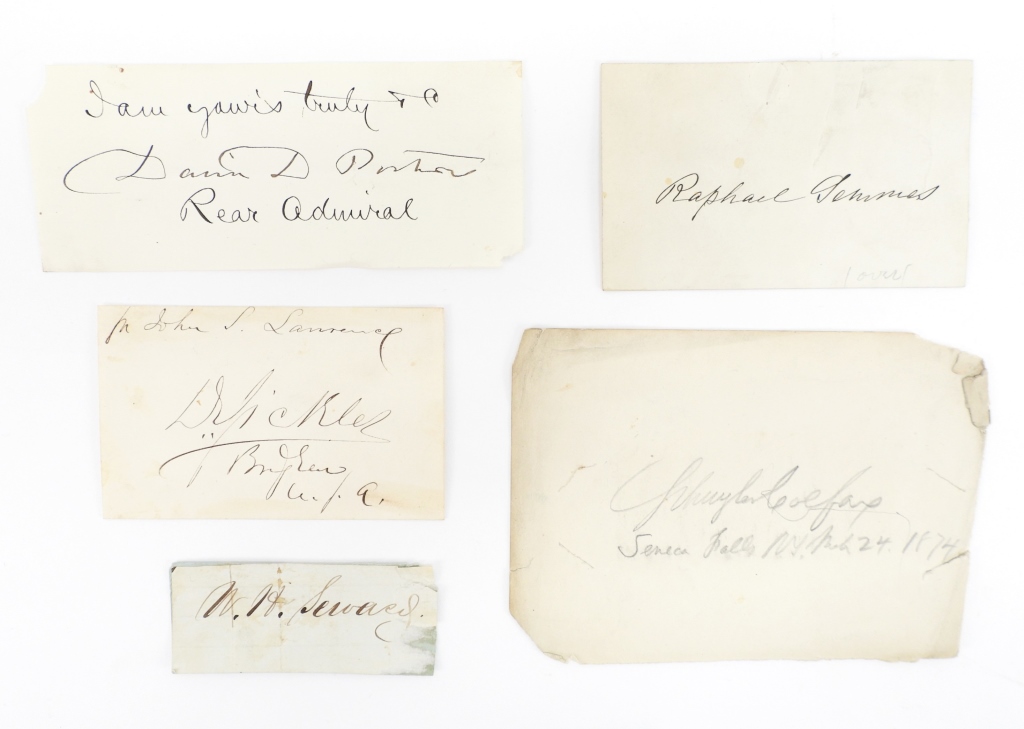 I am yours truly &c
David D Porter
Rear Admiral
Raphael Semmes
(over
for John S. Lawrence
D Sickles
Brig Gen
U.S.A.
Schuyler Colfax
Seneca Falls N.Y. Mch 24. 1874
W. H. Seward.